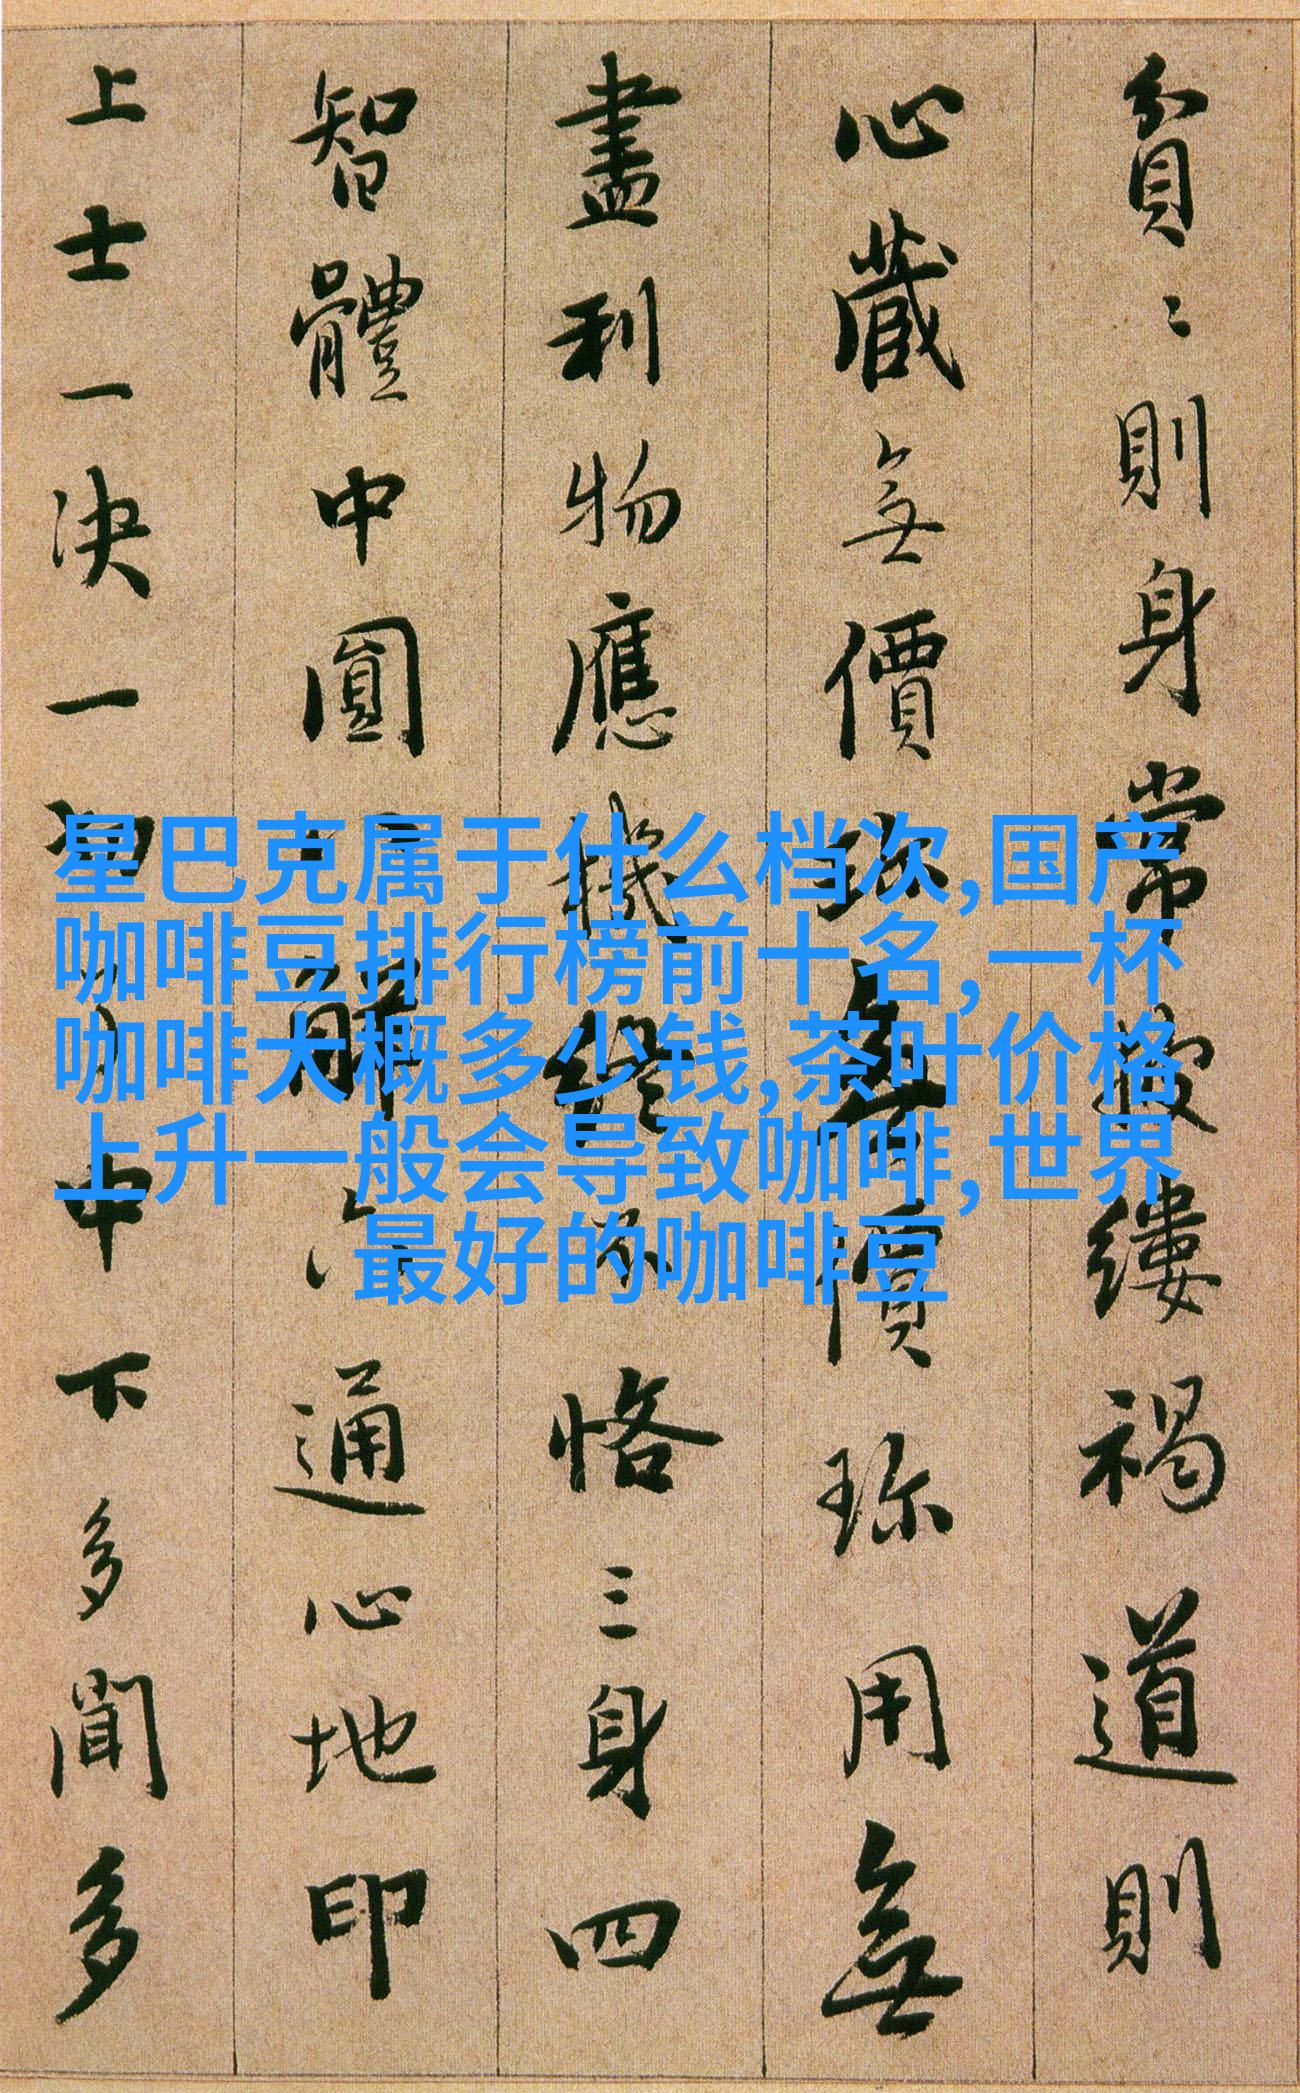 貧〻則身常披縷褐道則
心藏無價珎無價珎用無
盡利物應機終不恪三身四
智體中圓解六通心地印
上士一決一切中下多聞多
星巴克属于什么档次,国产
咖啡豆排行榜前十名,一杯
咖啡大概多少钱,茶叶价格
上升一般会导致咖啡,世界
最好的咖啡豆